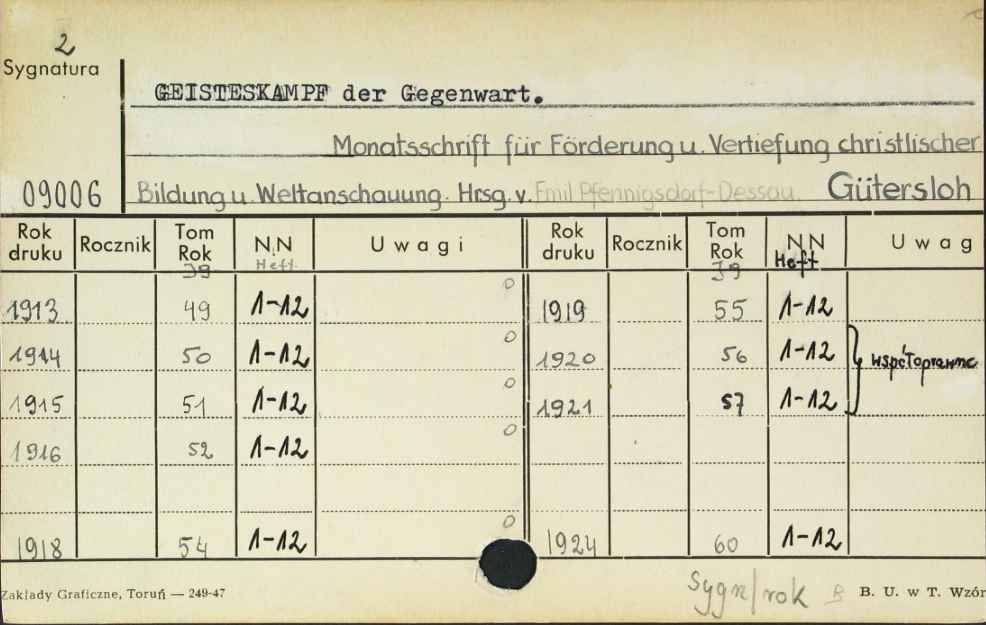 2
Sygnatura
GEISTESKAMPF der Gegenwart.
Monatsschrift für Förderung u. Vertiefung christlischer
09006 Bildung u. Weltanschauung. Hrsg. v. Emil Pfennigsdorf-Dessau. Gütersloh
Rok druku Rocznik Tom Rok Jg NN Heft Uwagi Rok druku Rocznik Tom Rok Jg NN Heft Uwag
1913 49 1-12 0 1919 55 1-12
1914 50 1-12 0 1920 56 1-12 współoprawne
1915 51 1-12 0 1921 57 1-12
1916 52 1-12 0
1918 54 1-12 0 1924 60 1-12
Zaklady Graficzne, Toruń — 249-47 Sygn/rok B B. U. w T. Wzór